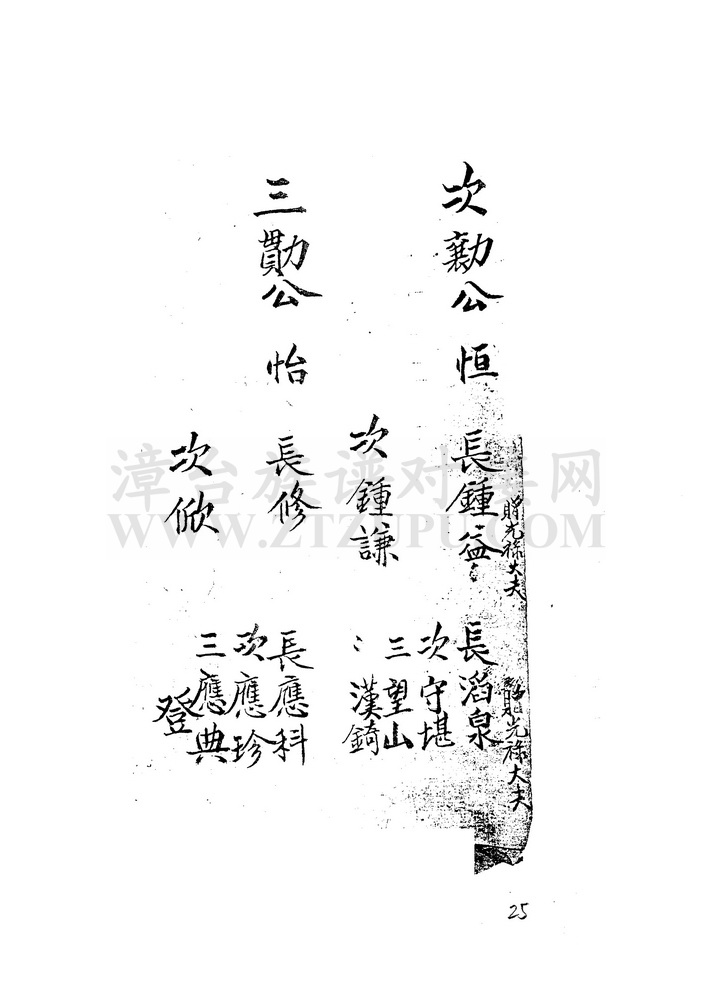 次勷公
恒
長鍾益
贈光祿大夫
長滔泉
光祿大夫
次守堪
三望山
次鍾謙
：漢錡
三勩公
怡
長修
長應科
次應珍
三應典
次俽
登
漳台族谱对接网
WWW.ZTZUPU.COM
25